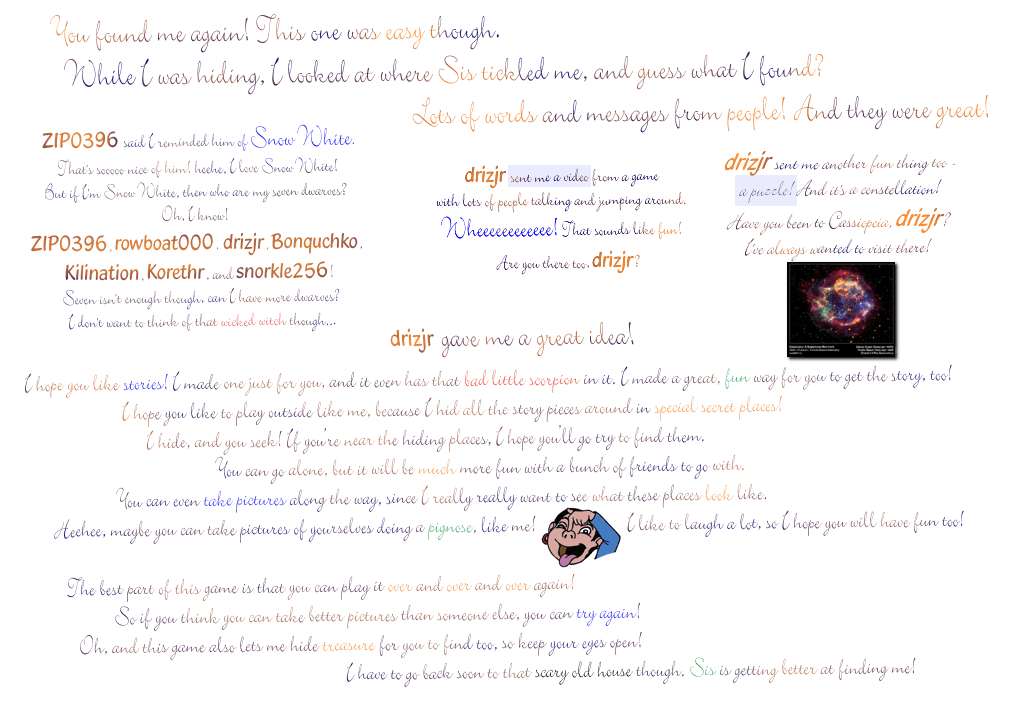 You found me again! This one was easy though.
While I was hiding, I looked at where Sis tickled me, and guess what I found?
Lots of words and messages from people! And they were great!
ZIP0396 said I reminded him of Snow White.
That's sooooo nice of him! heehe, I love Snow White!
But if I'm Snow White, then who are my seven dwarves?
Oh, I know!
ZIP0396, rowboat000, drizjr, Bonquchko,
Kilination, Korethr, and snorkle256!
Seven isn't enough though, can I have more dwarves?
I don't want to think of that wicked witch though...
drizjr sent me a video from a game
with lots of people talking and jumping around.
Wheeeeeeeeeeee! That sounds like fun!
Are you there too, drizjr?
drizjr sent me another fun thing too -
a puzzle! And it's a constellation!
Have you been to Cassiopeia, drizjr?
I've always wanted to visit there!
drizjr gave me a great idea!
I hope you like stories! I made one just for you, and it even has that bad little scorpion in it. I made a great, fun way for you to get the story, too!
I hope you like to play outside like me, because I hid all the story pieces around in special secret places!
I hide, and you seek! If you're near the hiding places, I hope you'll go try to find them.
You can go alone, but it will be much more fun with a bunch of friends to go with.
You can even take pictures along the way, since I really really want to see what these places look like.
Heehee, maybe you can take pictures of yourselves doing a pignose, like me! I like to laugh a lot, so I hope you will have fun too!
The best part of this game is that you can play it over and over and over again!
So if you think you can take better pictures than someone else, you can try again!
Oh, and this game also lets me hide treasure for you to find too, so keep your eyes open!
I have to go back soon to that scary old house though. Sis is getting better at finding me!